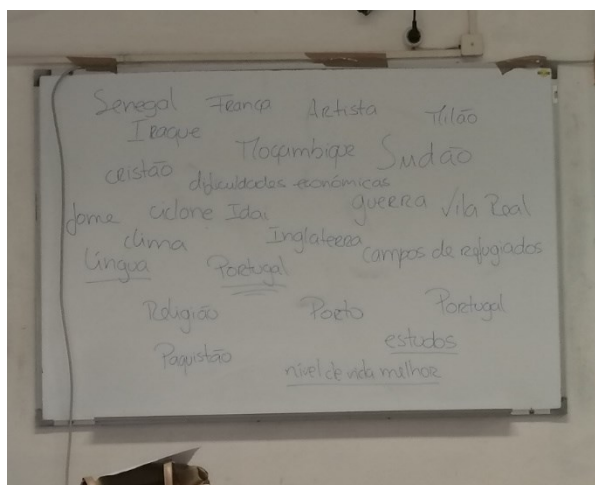 Senegal França Artista Milão
Iraque
Moçambique Sudão
cristão
dificuldades económicas
fome ciclone Idai guerra Vila Real
clima Inglaterra campos de refugiados
Língua Portugal
Religião Porto Portugal
estudos
Paquistão
nível de vida melhor